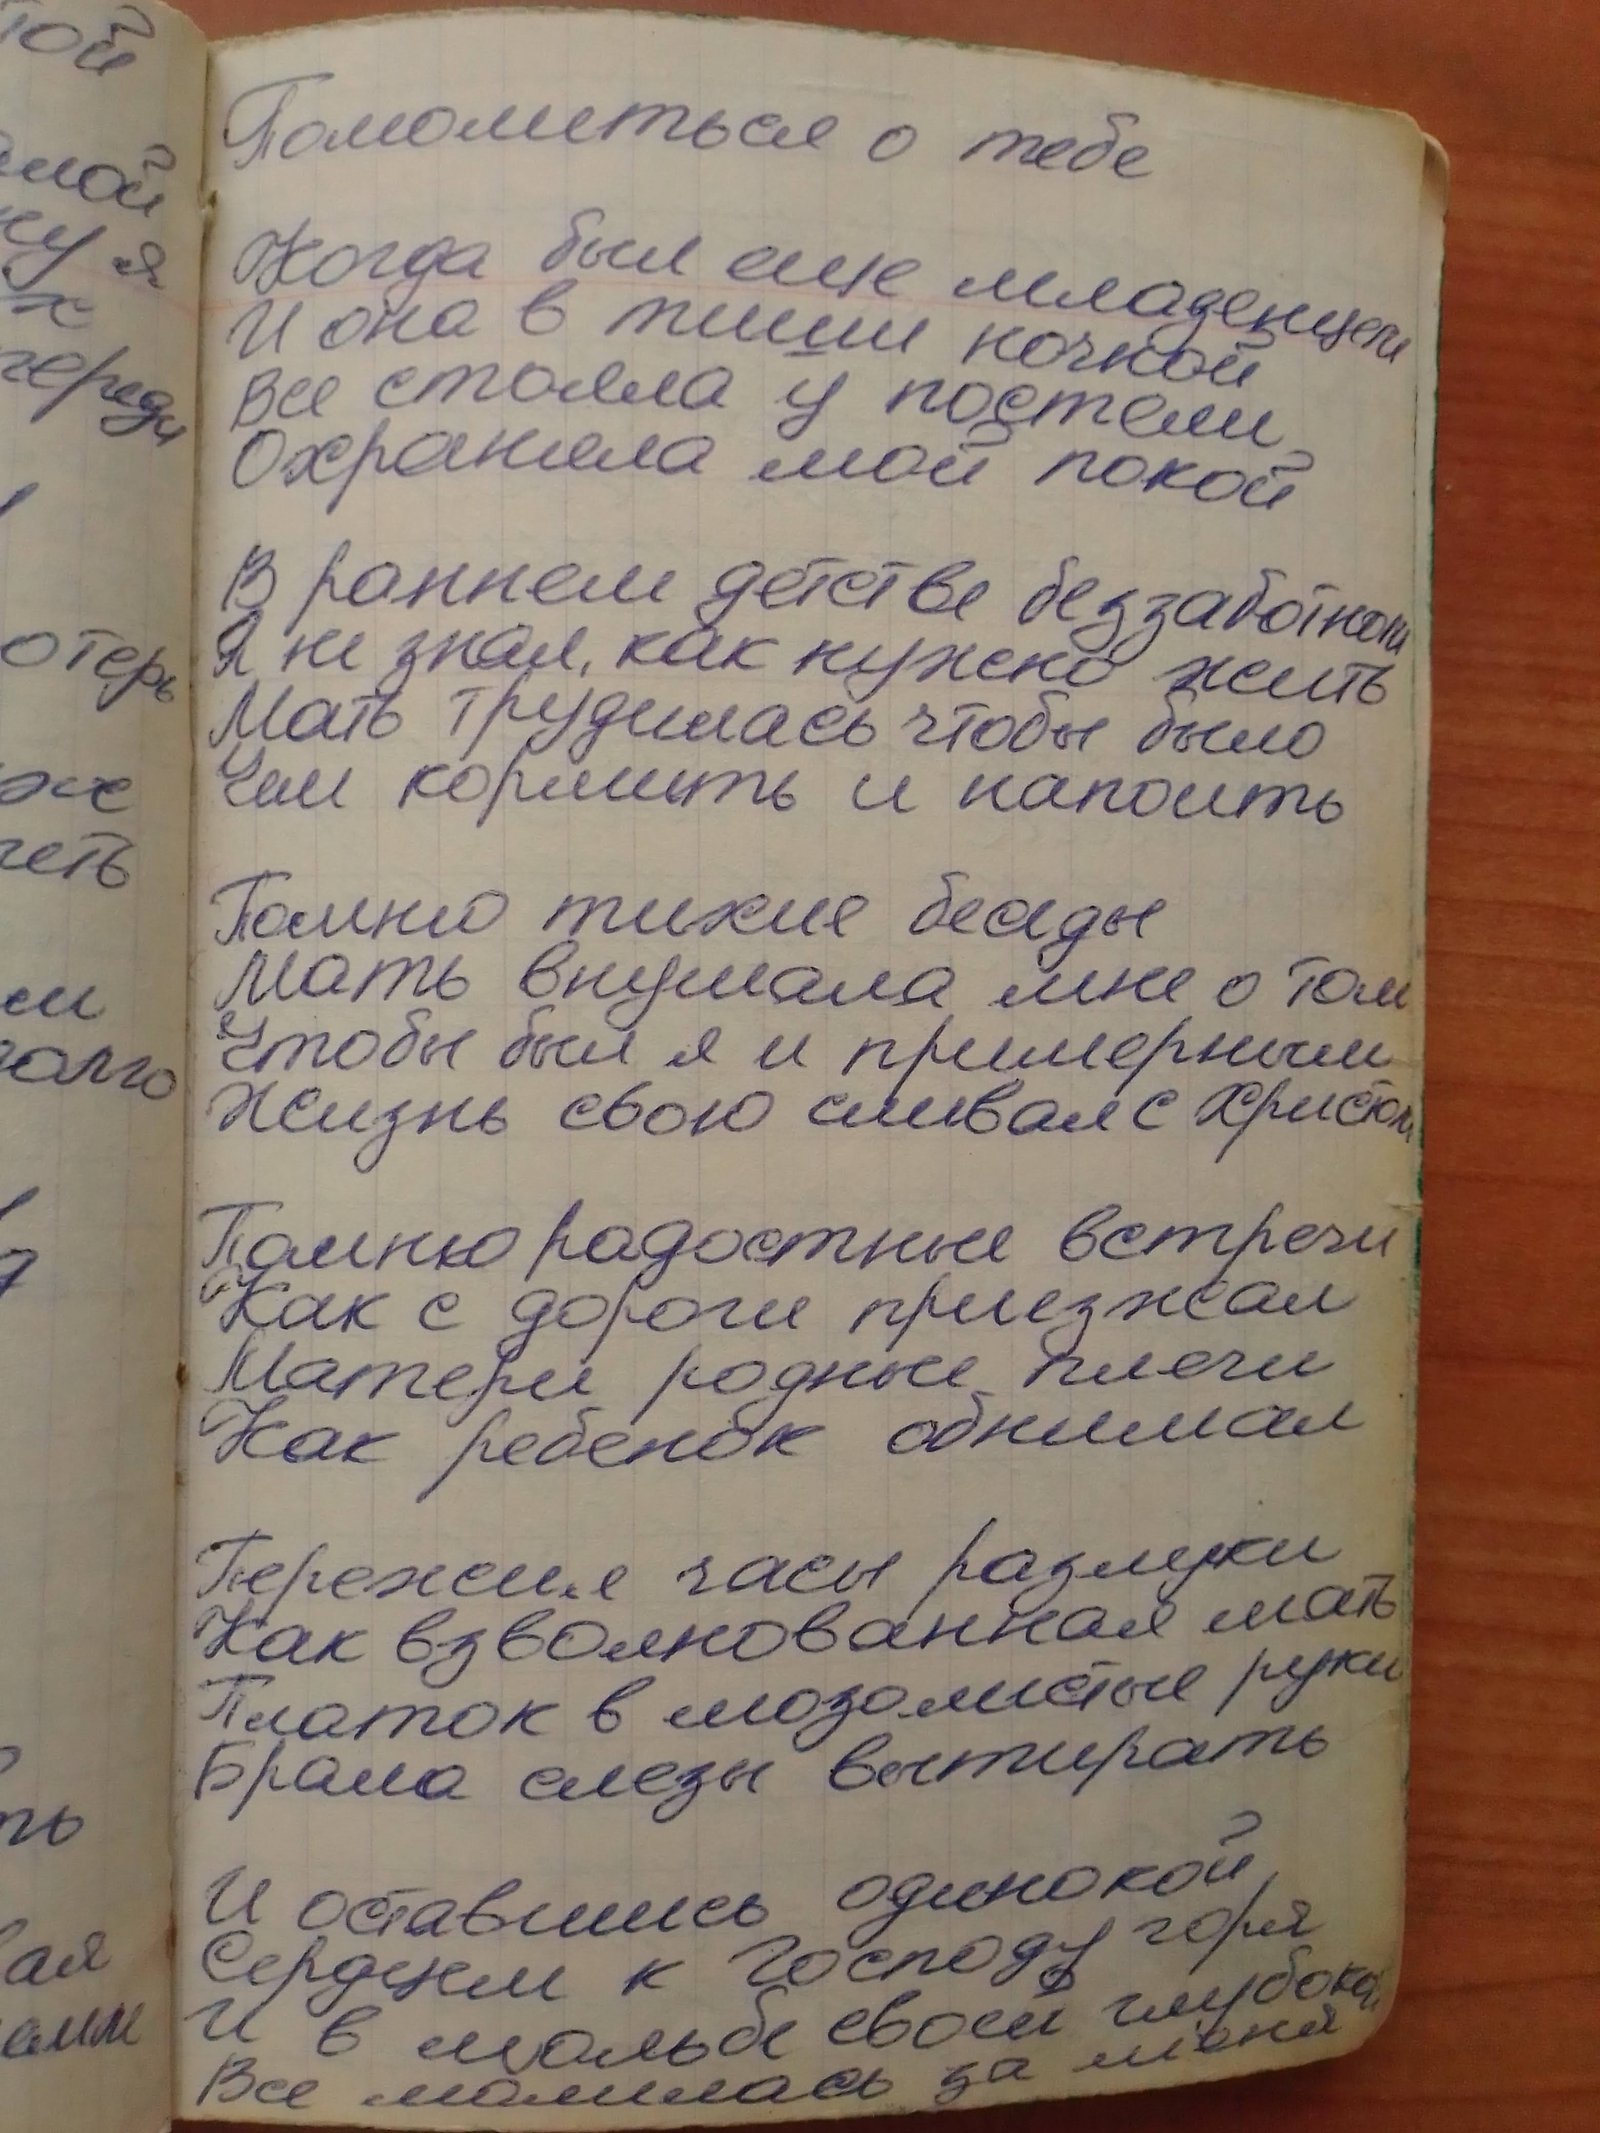 той
амой
ну я
х
череди
отерь
же
четь
ем
долго
ть
вая
Помолиться о тебе
Когда был еще младенцем
И она в тиши ночной
Все стояла у постели
Охраняла мой покой
В раннем детстве беззаботном
Я не знал, как нужно жить
Мать трудилась чтобы было
Чем кормить и напоить
Помню тихие беседы
Мать внушала мне о том
Чтобы был я и примерным
Жизнь свою сливал с Христом
Помню радостные встречи
Как с дороги приезжал
Матери родные плечи
Как ребенок обнимал
Пережил часы разлуки
Как взволнованная мать
Платок в мозолистые руки
Брала слезы вытирать
И оставшись одинокой
Сердцем к Господу горя
И в мольбе своей глубокой
Все молилась за меня